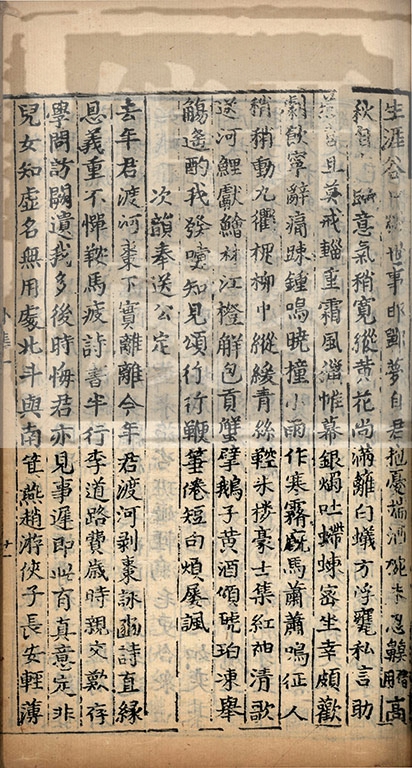 生涯谷口耕世事邯鄲夢自君抱憂端酒椀未忍高
秋自臨意氣稍寬縱黃花尚滿籬白蟻方浮甕私言助
燕喜且莫戒輜重霜風獵帷幕銀燭吐螮蝀密坐幸頗歡
劇飲寧辭痛踈鍾鳴曉撞小雨作寒霿厩馬蕭蕭鳴征人
稍稍動九衢槐柳中縱緩青絲鞚朱樓豪士集紅袖清歌
送河鯉獻鱠材江橙解包貢蟹擘鵝子黃酒傾琥珀凍舉
觴遙酌我發嚏知見頌行行鞭箠倦短句煩屢諷
次韻奉送公定
去年君渡河棗下實離離今年君渡河剥棗詠豳詩直緣
恩義重不憚鞍馬疲詩書半行李道路費歲時親交歎存
學問訪闕遺我多後時悔君亦見事遲即此有真意定非
兒女知虚名無用處北斗與南箕燕趙游俠子長安輕薄